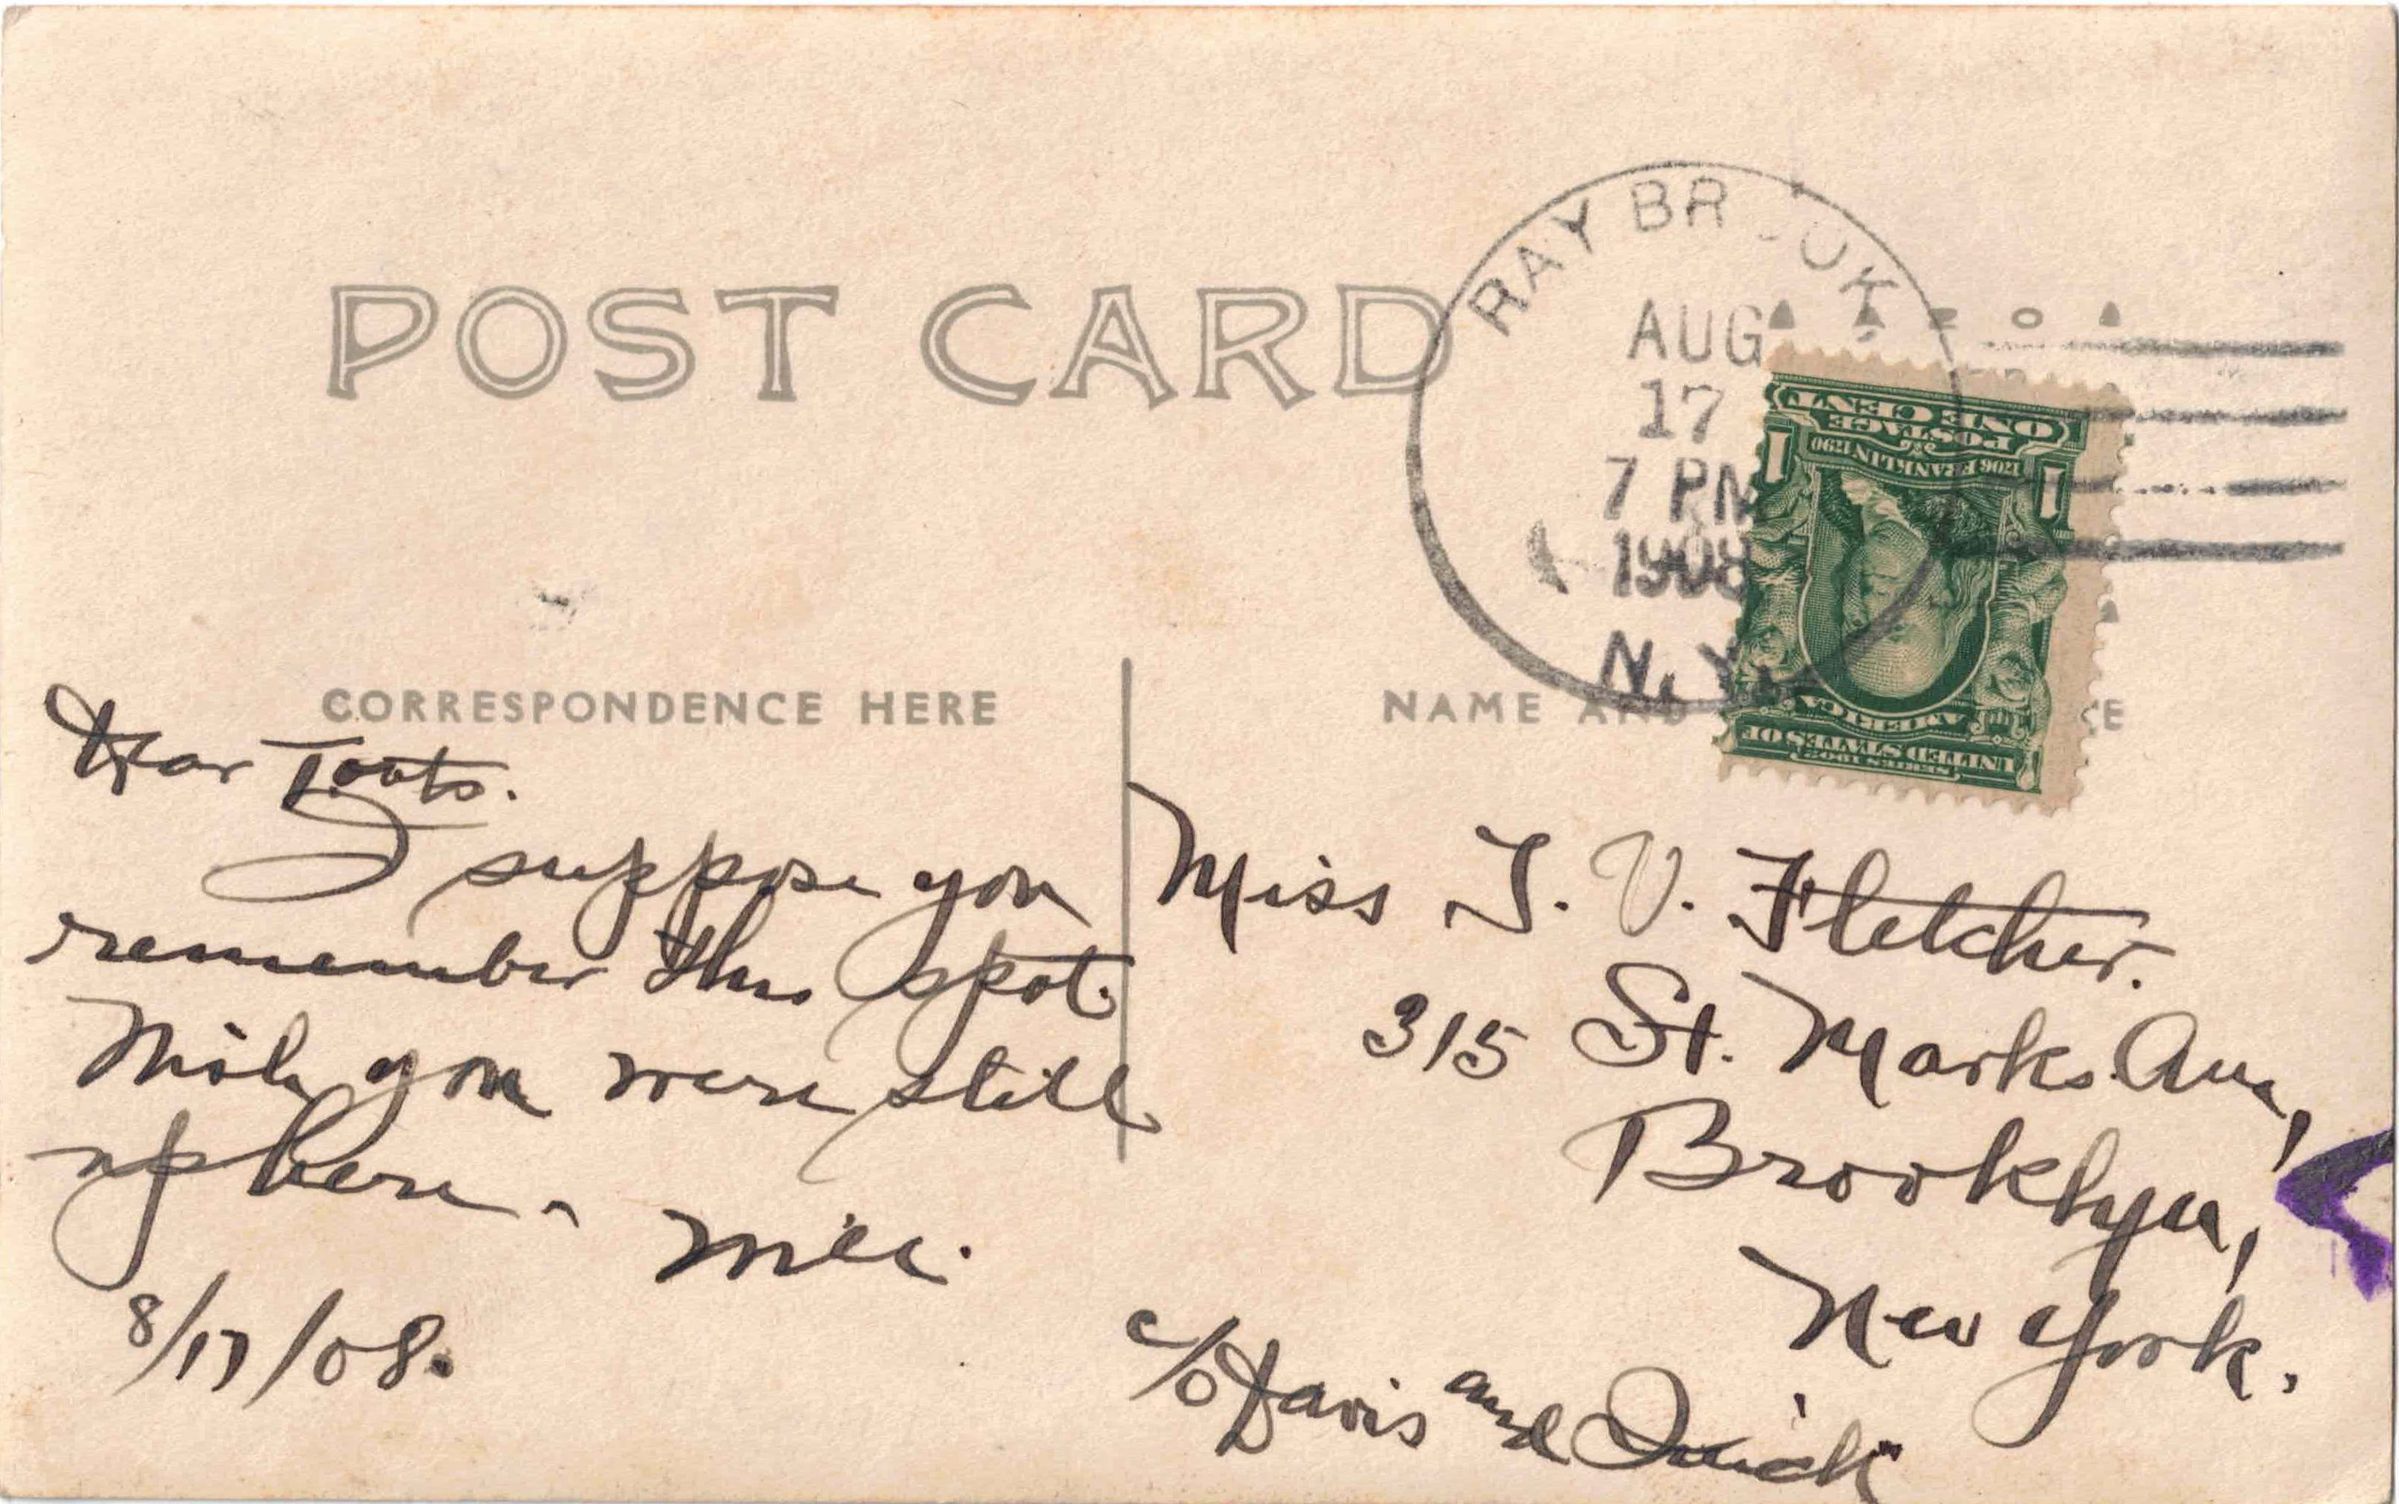 POST CARD
RAY BROOK
AUG
17
7 PM
1908
N.Y.
AZO
ONE CENT
POSTAGE
1706 FRANKLIN 1790
1 1
AMERICA
UNITED STATES OF
SERIES 1902
CORRESPONDENCE HERE
NAME AND
Dear Toots.
I suppose you
remember this spot.
Wish you were still
up here -
8/17/08.
Miss T. V. Fletcher.
315 St. Marks Ave,
Brooklyn,
New York.
c/o Davis and Quick